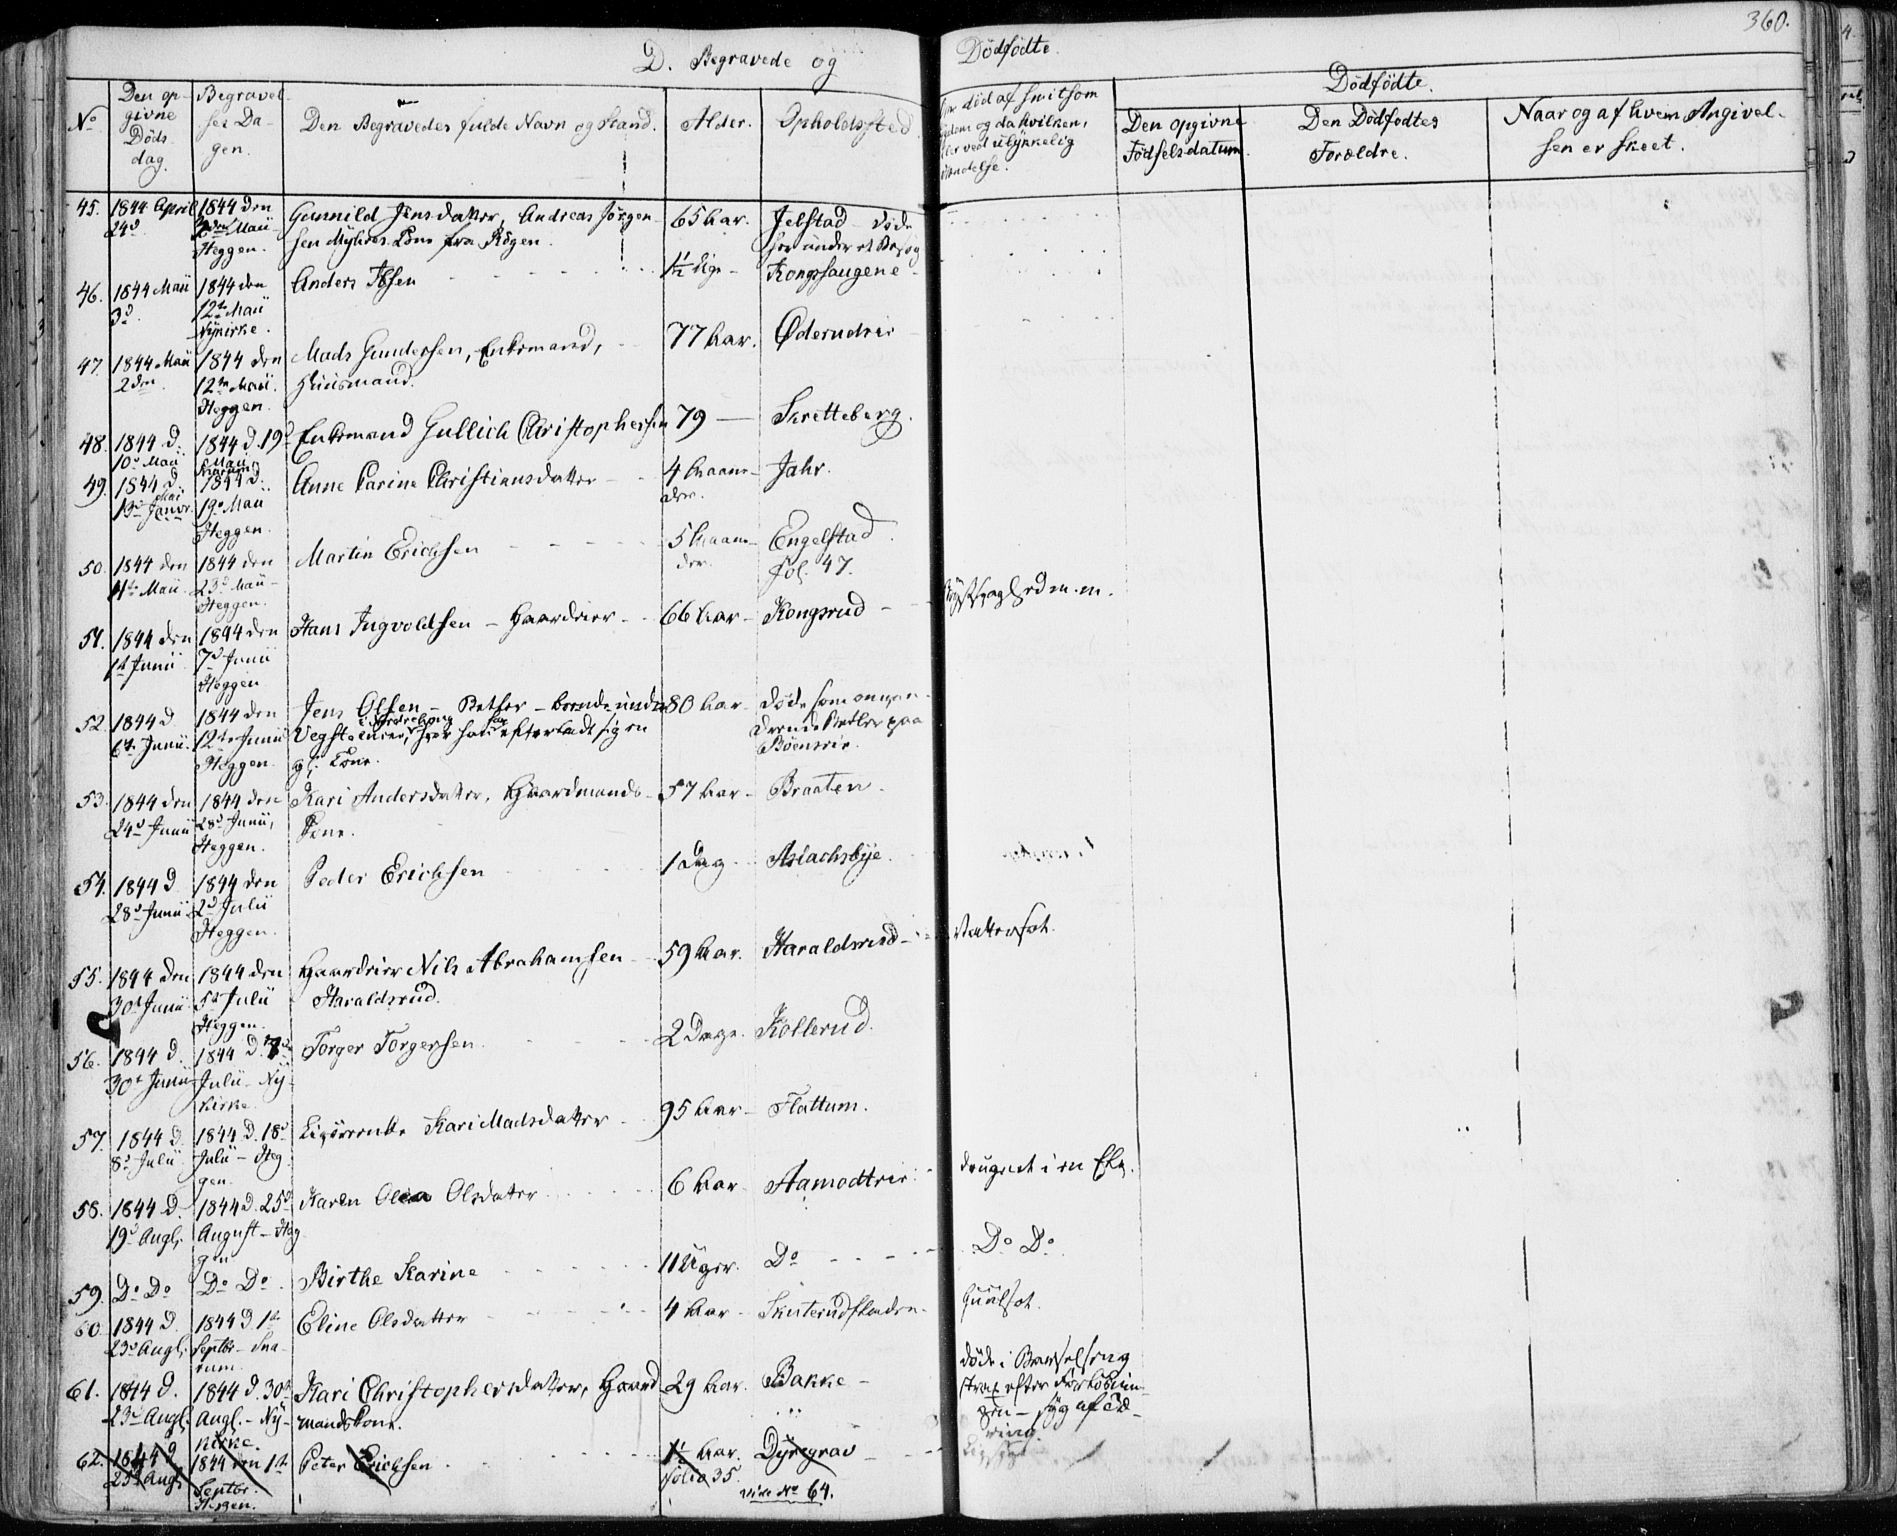 360.
D. Begravede og Dödfödte.
No
Den op-
givne
Döds
dag.
Begravel-
ses Da-
gen.
Den Begravedes fulde Navn og Stand.
Alder.
Opholdssted
død af smitsom
og da hvilken,
ved ulÿkkelig
hændelse.
Dödfödte.
Den opgivne
Födselsdatum.
Den Dödfödtes
Forældre.
Naar og af hvem Angivel-
sen er skeet.
45. 1844 April 24d 1844 den Maii Heggen. Gunnild Jensdatter, Andreas Jörgen-
sen Kone fra Rögen. 65 Aar. Jelstad döde
under et Besög
46. 1844 Maii 3d 1844 den 12te Maii Nykirke. Anders Ibsen 1½ Uge Kongssaugene
47. 1844 Maii 2den 1844 den 12te Maii. Heggen. Mads Gundersen, Enkemand,
Huusmand. 77 Aar. Öderudeie
48. 1844 d. 10d Maii 1844 d. 19d Maii Snarum Enkemand Gullich Christophersen 79 — Skretteberg.
49. 1844 d. 13d Mai 1844 d. 19d Maii Heggen. Anne Carine Christiansdatter 4 Maane-
der. Jahr.
50. 1844 den Maii 1844 den 23d Maii Heggen. Martin Erichsen 5 Maane-
der. Engelstad
fol. 47.
51. 1844 den 1t Junii 1844 den 7d Junii Heggen Hans Ingvoldsen – Gaardeier 66 Aar Kongsrud m.m.
52. 1844 d. 6te Junii 1844 den 12te Junii Heggen. Jens Olsen – Betler – boende under
hvor han har efterladt sig en
gl. Kone. 80 Aar döde som omvan-
drende Betler paa
Böenseie.
53. 1844 den 24d Junii 1844 den 28d Junii, Heggen. Kari Andersdatter, Gaardmands
Kone. 57 Aar Braaten
54. 1844 d. 28d Junii 1844 den 2d Julii Heggen. Peder Erichsen 1 Dag Aslachsbÿe
55. 1844 den 30d Junii 1844 den 5d Julii Heggen. Gaardeier Nils Abrahamsen
Haraldsrud. 59 Aar. Haraldsrud Vattersot.
56. 1844 d. 30t Junii 1844 d. 7d Julii – Ny-
kirke. Torger Torgersen. 2 Dage. Kollerud.
57. 1844 d. 8d Julii 1844 d. 18d Julii – Heg-
gen. Kari Madsdatter 95 Aar Flattum.
58. 1844 d. 19d Augl. 1844 d. 25d August – Heg-
gen Karen Olea Olsdatter 6 Aar Aamodteie druknet i en Elv.
59. Do Do Do Do Birthe Karine 11 Uger. Do Do Do
60. 1844 d. 23d Augl. 1844 d. 1te Septbr – Sna-
rum. Eline Olsdatter 4 Aar Skuterudfladen Guulsot.
61. 1844 d. 23d Augl. 1844 d. 30d Augl. – Ny-
kirke. Kari Christophersdatter, Gaard-
mandskone. 29 Aar. Bakke döde i Barselseng
strax efter Forlösnin-
gen – syg af Tæ-
ring.
62. 1844 d 25d Augl. 1844 den 1te Septbr. Heggen. Peter Erichsen 1½ Aar.
folio 35. Dyregrav
vide No 64.